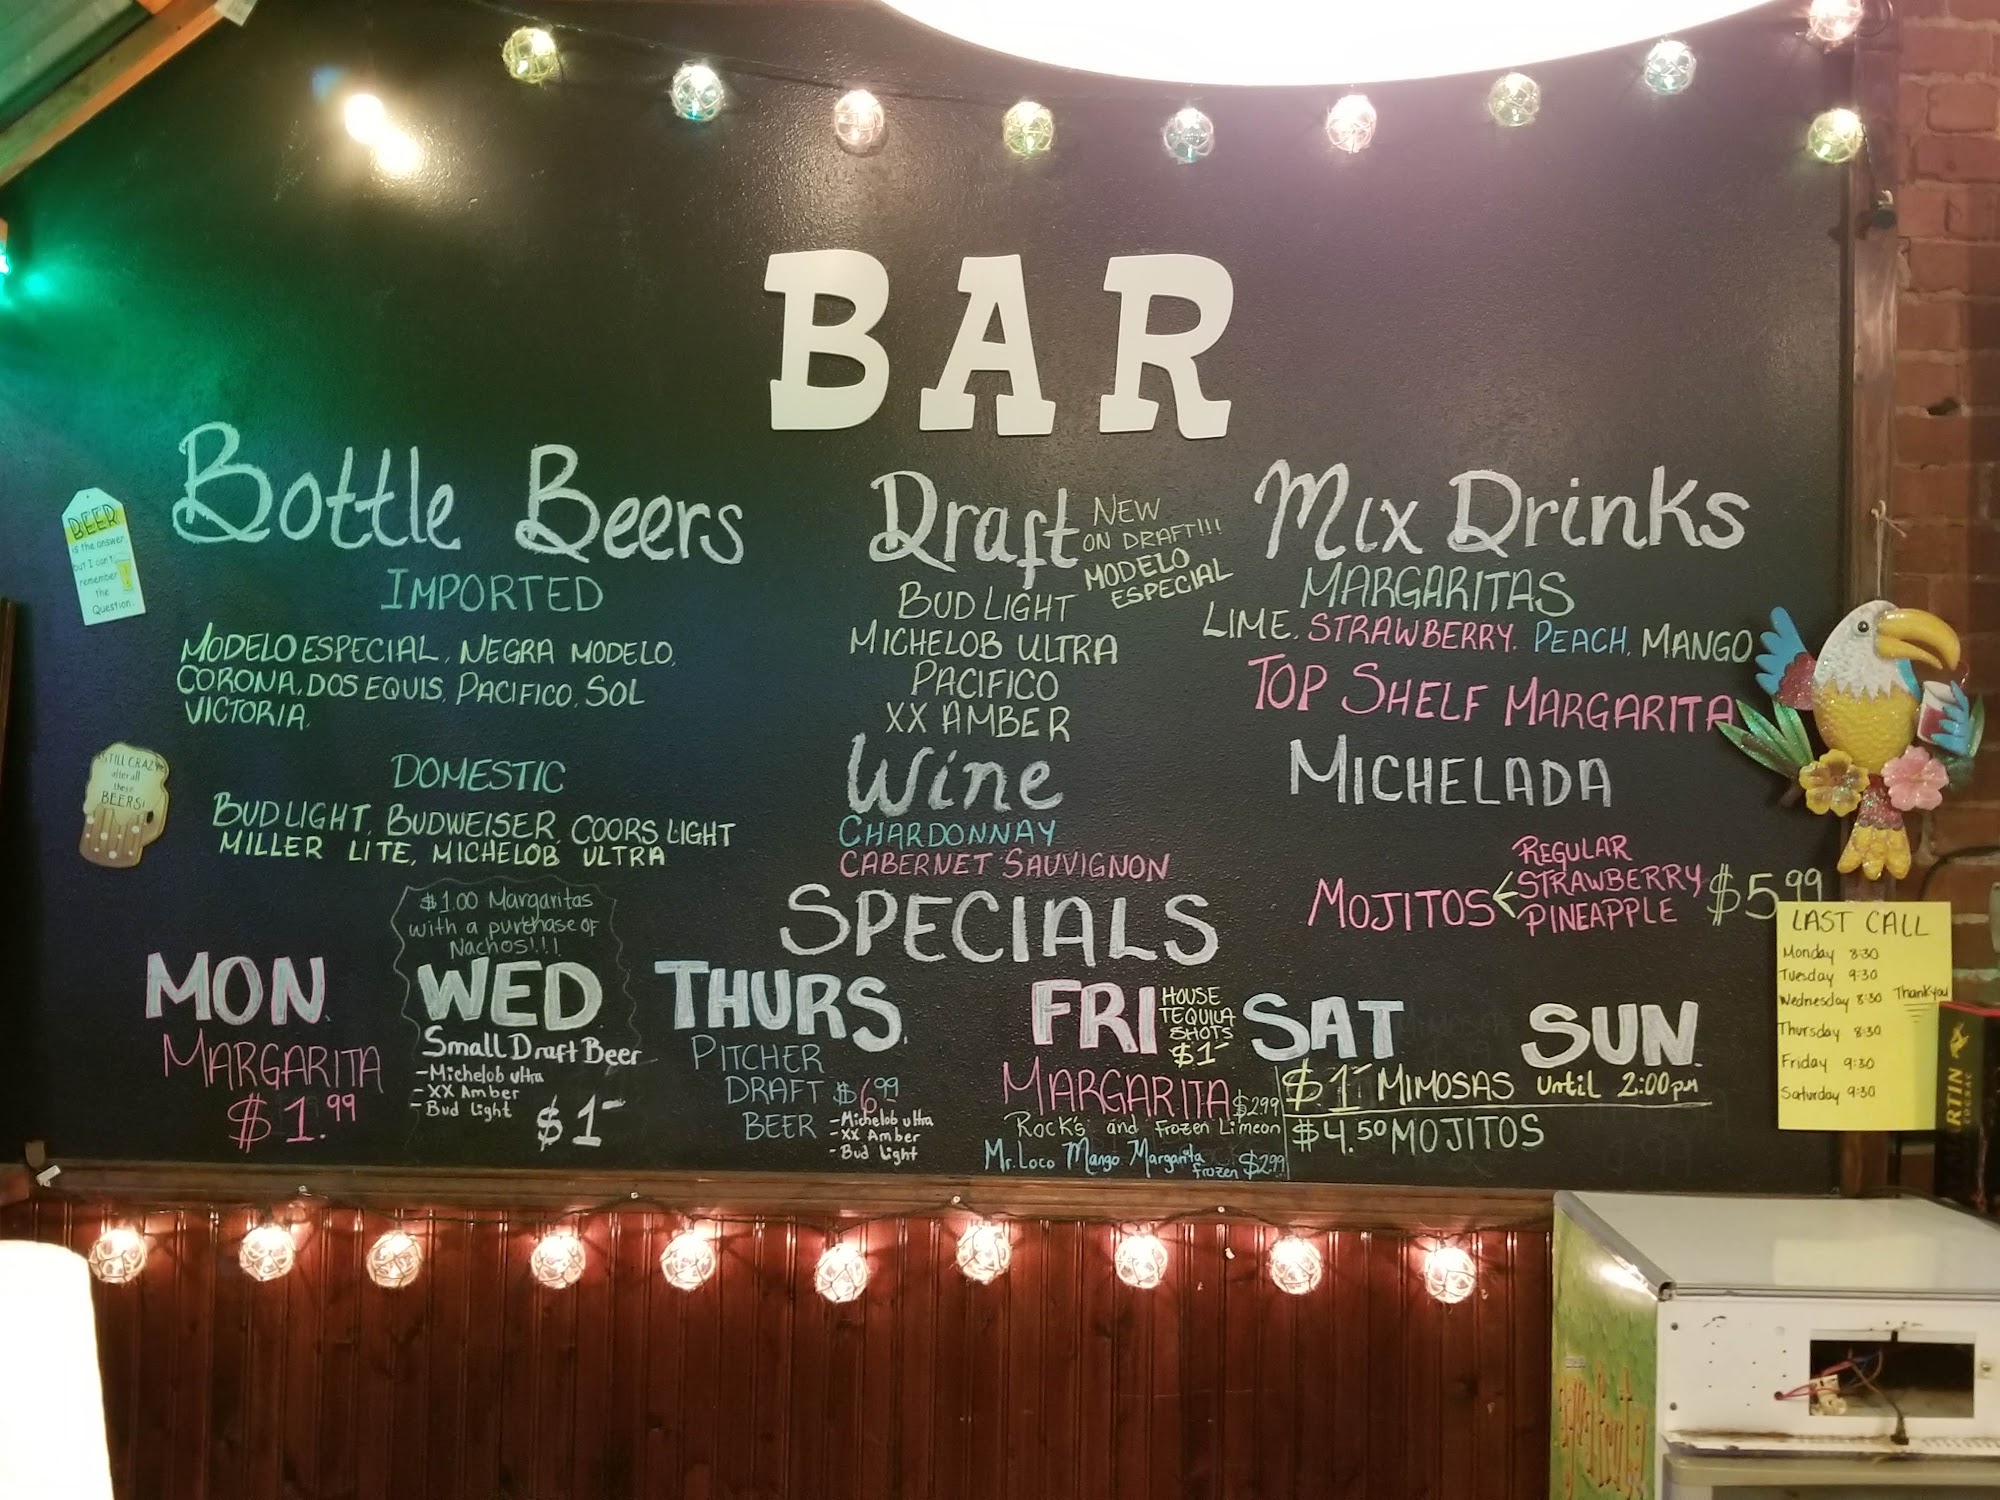 BAR
Bottle Beers
IMPORTED
MODELO ESPECIAL, NEGRA MODELO,
CORONA, DOS EQUIS, PACIFICO, SOL
VICTORIA,
DOMESTIC
BUD LIGHT, BUDWEISER, COORS LIGHT
MILLER LITE, MICHELOB ULTRA
Draft
NEW
ON DRAFT!!!
MODELO
ESPECIAL
BUD LIGHT
MICHELOB ULTRA
PACIFICO
XX AMBER
Wine
CHARDONNAY
CABERNET SAUVIGNON
Mix Drinks
MARGARITAS
LIME, STRAWBERRY, PEACH, MANGO
TOP SHELF MARGARITA
MICHELADA
MOJITOS
REGULAR
STRAWBERRY
PINEAPPLE
$5.99
SPECIALS
MON.
MARGARITA
$1.99
$1.00 Margaritas
with a purthase of
Nachos!!!
WED
Small Draft Beer
-Michelob ultra
-XX Amber
-Bud light
$1-
THURS.
PITCHER
DRAFT $6.99
BEER
-Michelob ultra
-XX Amber
-Bud light
FRI
HOUSE
TEQUILA
SHOTS
$1-
MARGARITA $2.99
Rock's and frozen Limeon
Mr. Loco Mango Margarita
frozen $2.99
SAT SUN.
$1- MIMOSAS until 2:00pm
$4.50 MOJITOS
LAST CALL
Monday 8:30
Tuesday 9:30
Wednesday 8:30 Thankyou
Thursday 8:30
Friday 9:30
Saturday 9:30
BEER
is the answer,
but I can't
remember
the
Question.
STILL CRAZY
after all
these
BEERS!